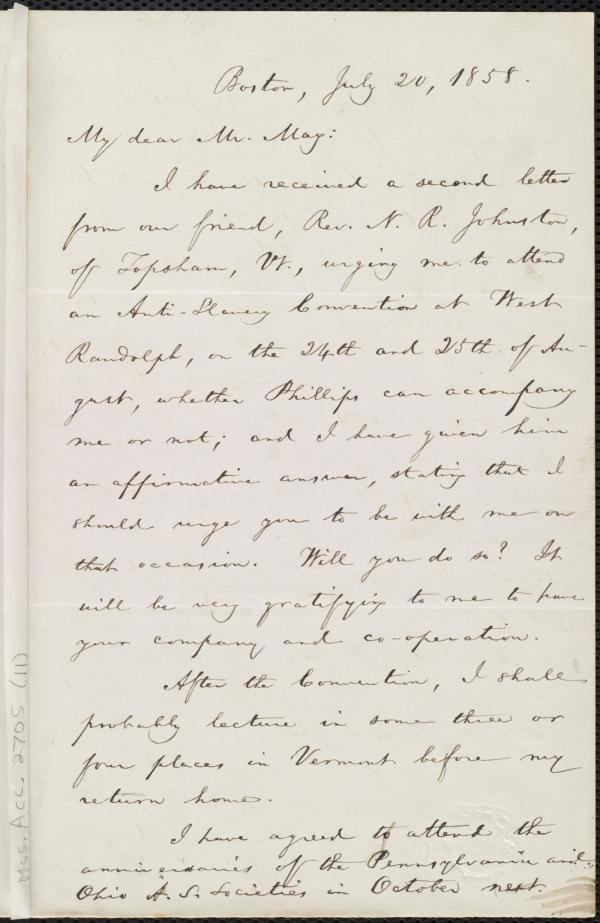 Boston, July 20, 1858.
My dear Mr. May:
I have received a second letter
from our friend, Rev. N. R. Johnston,
of Topsham, Vt., urging me to attend
an Anti-Slavery Convention at West
Randolph, on the 24th and 25th of Au-
gust, whether Phillips can accompany
me or not; and I have given him
an affirmative answer, stating that I
should urge you to be with me on
that occasion. Will you do so? It
will be very gratifying to me to have
your company and co-operation.
After the Convention, I shall
probably lecture in some three or
four places in Vermont before my
return home.
I have agreed to attend the
anniversaries of the Pennsylvania and
Ohio A. S. Societies in October next.
Mss. Acc. 2705 (11)